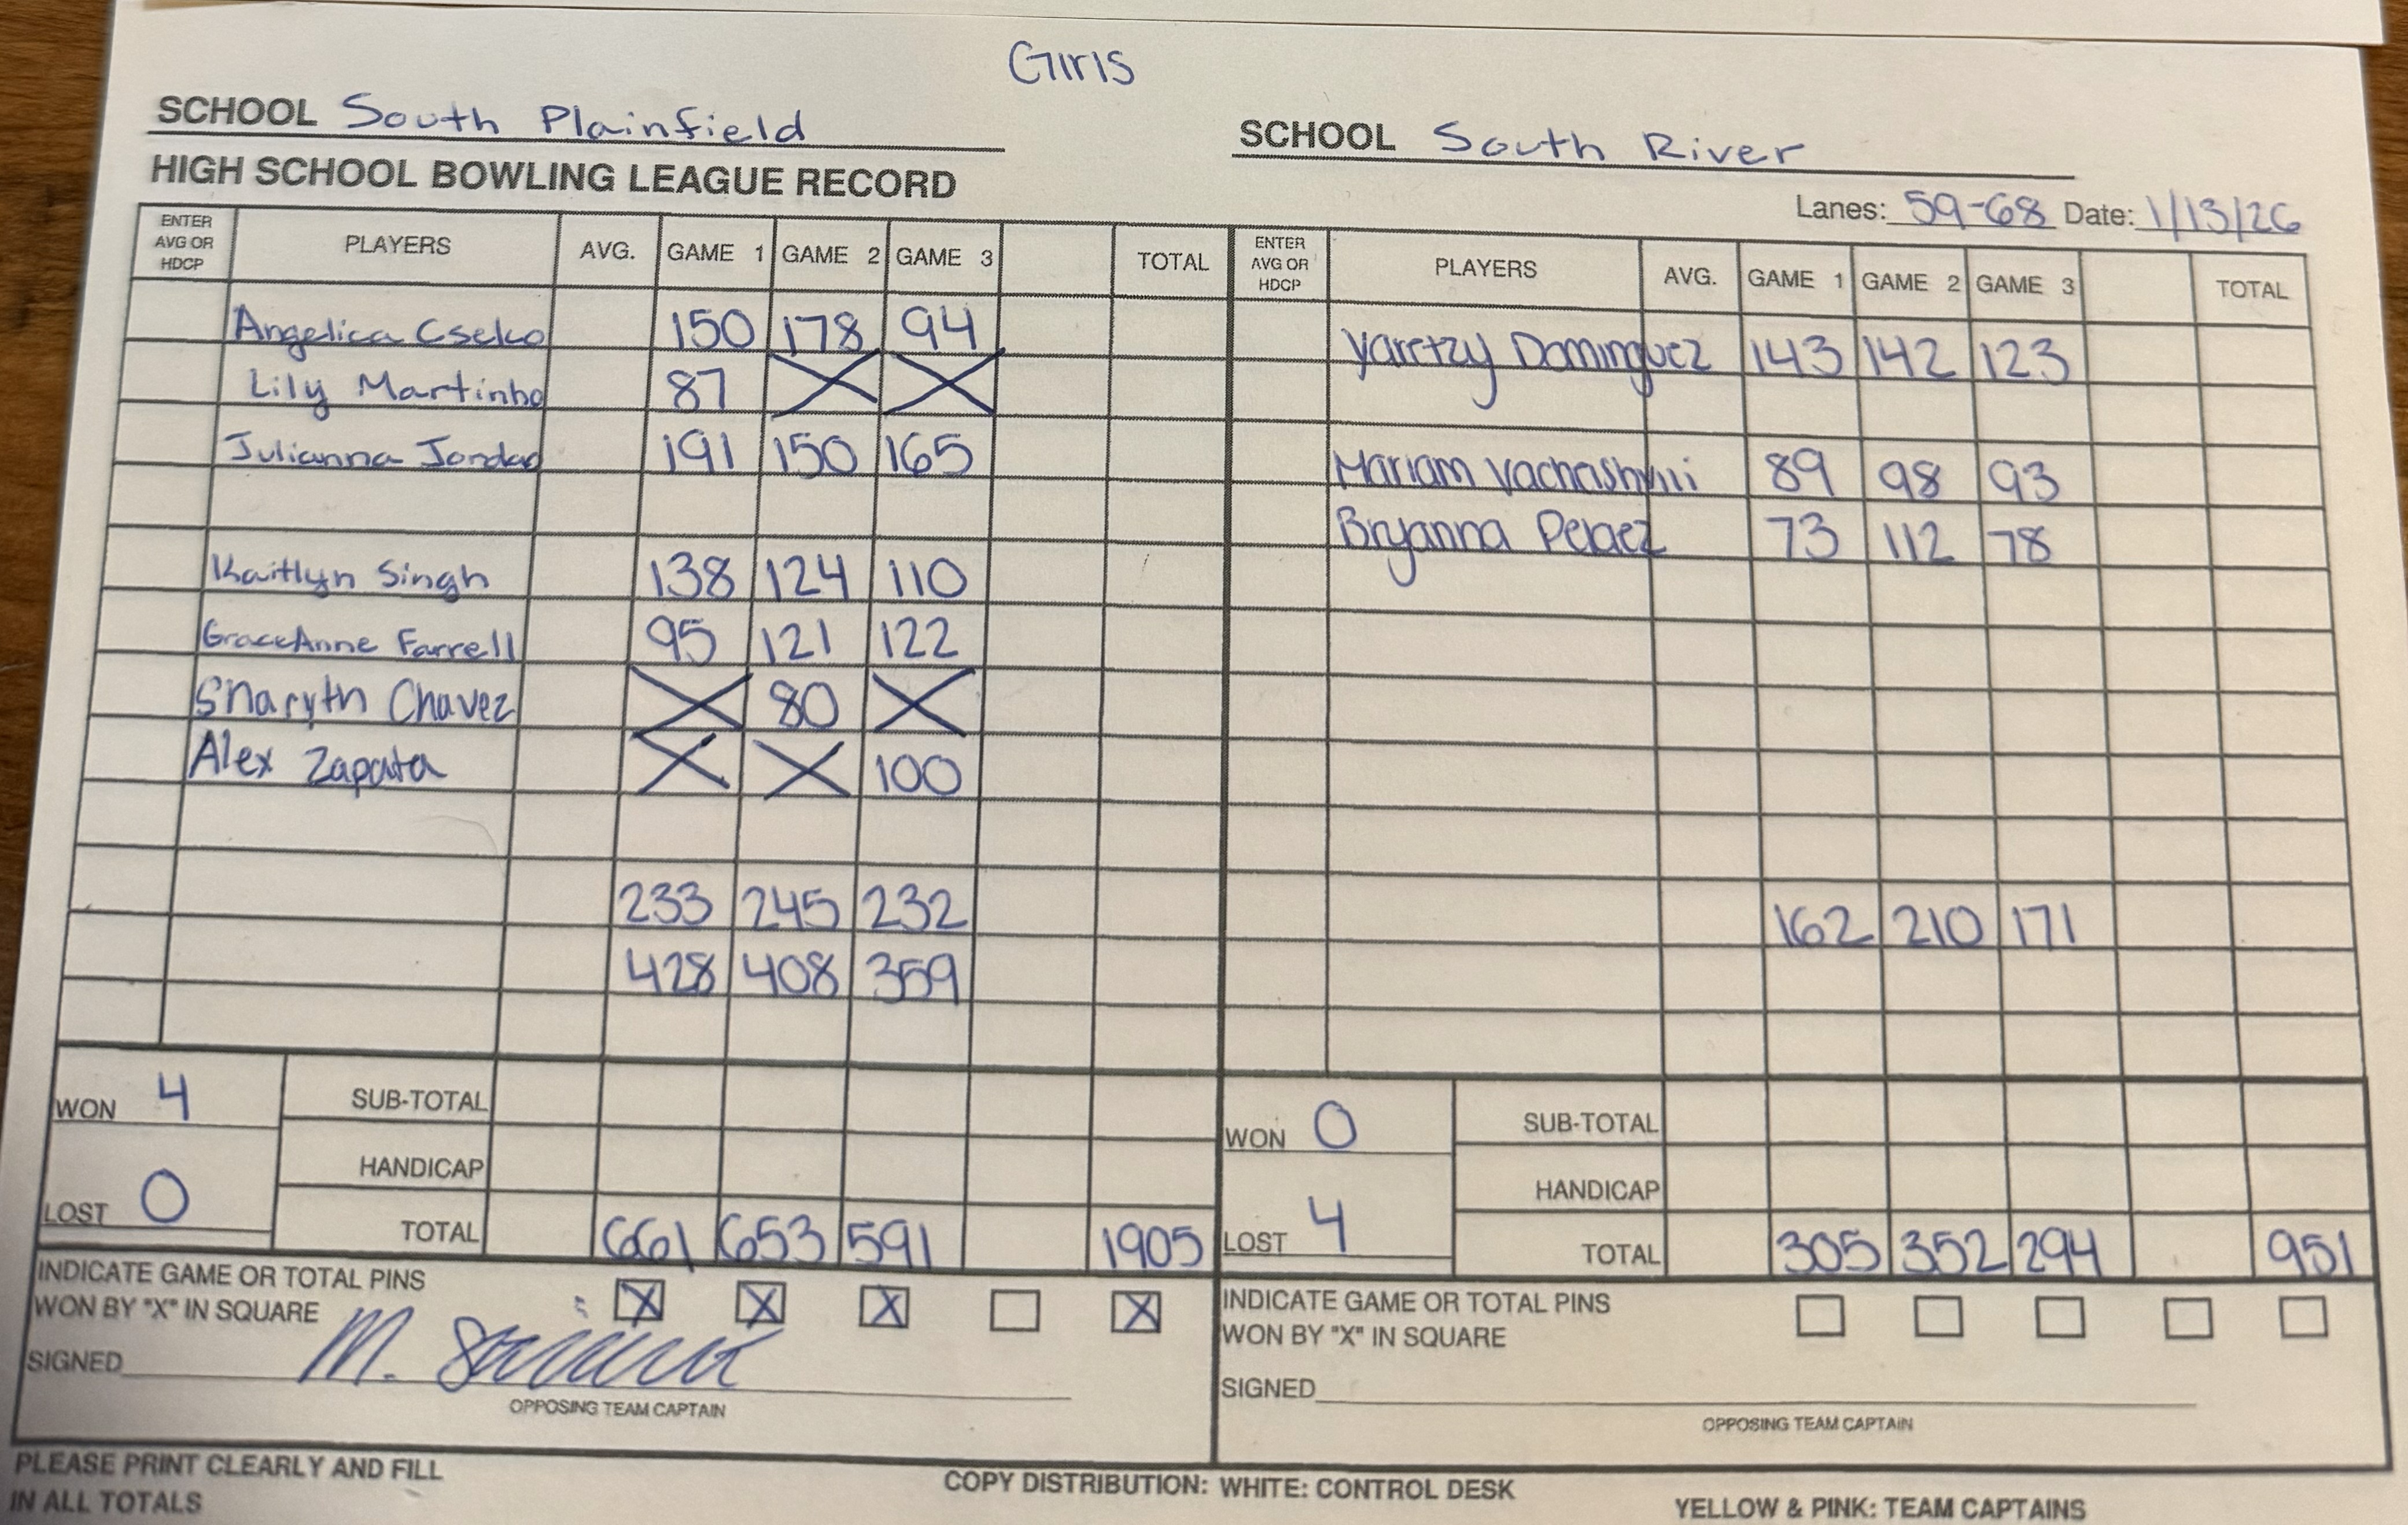 Girls
SCHOOL South Plainfield
SCHOOL South River
HIGH SCHOOL BOWLING LEAGUE RECORD
Lanes: 59-68 Date: 1/13/26
ENTER AVG OR HDCP PLAYERS AVG. GAME 1 GAME 2 GAME 3 TOTAL
Angelica Cseko 150 178 94
Lily Martinho 87 X X
Julianna Jordao 191 150 165
Kaitlyn Singh 138 124 110
GraceAnne Farrell 95 121 122
Sharyth Chavez X 80 X
Alex Zapata X X 100
233 245 232
428 408 359
WON 4
LOST 0
SUB-TOTAL
HANDICAP
TOTAL 661 653 591 1905
INDICATE GAME OR TOTAL PINS
WON BY "X" IN SQUARE X X X X
SIGNED M.
OPPOSING TEAM CAPTAIN
ENTER AVG OR HDCP PLAYERS AVG. GAME 1 GAME 2 GAME 3 TOTAL
Yaretzy Dominguez 143 142 123
Mariam Vachashvili 89 98 93
Bryanna Pelaez 73 112 78
162 210 171
WON 0
LOST 4
SUB-TOTAL
HANDICAP
TOTAL 305 352 294 951
INDICATE GAME OR TOTAL PINS
WON BY "X" IN SQUARE
SIGNED
OPPOSING TEAM CAPTAIN
PLEASE PRINT CLEARLY AND FILL
IN ALL TOTALS
COPY DISTRIBUTION: WHITE: CONTROL DESK
YELLOW & PINK: TEAM CAPTAINS